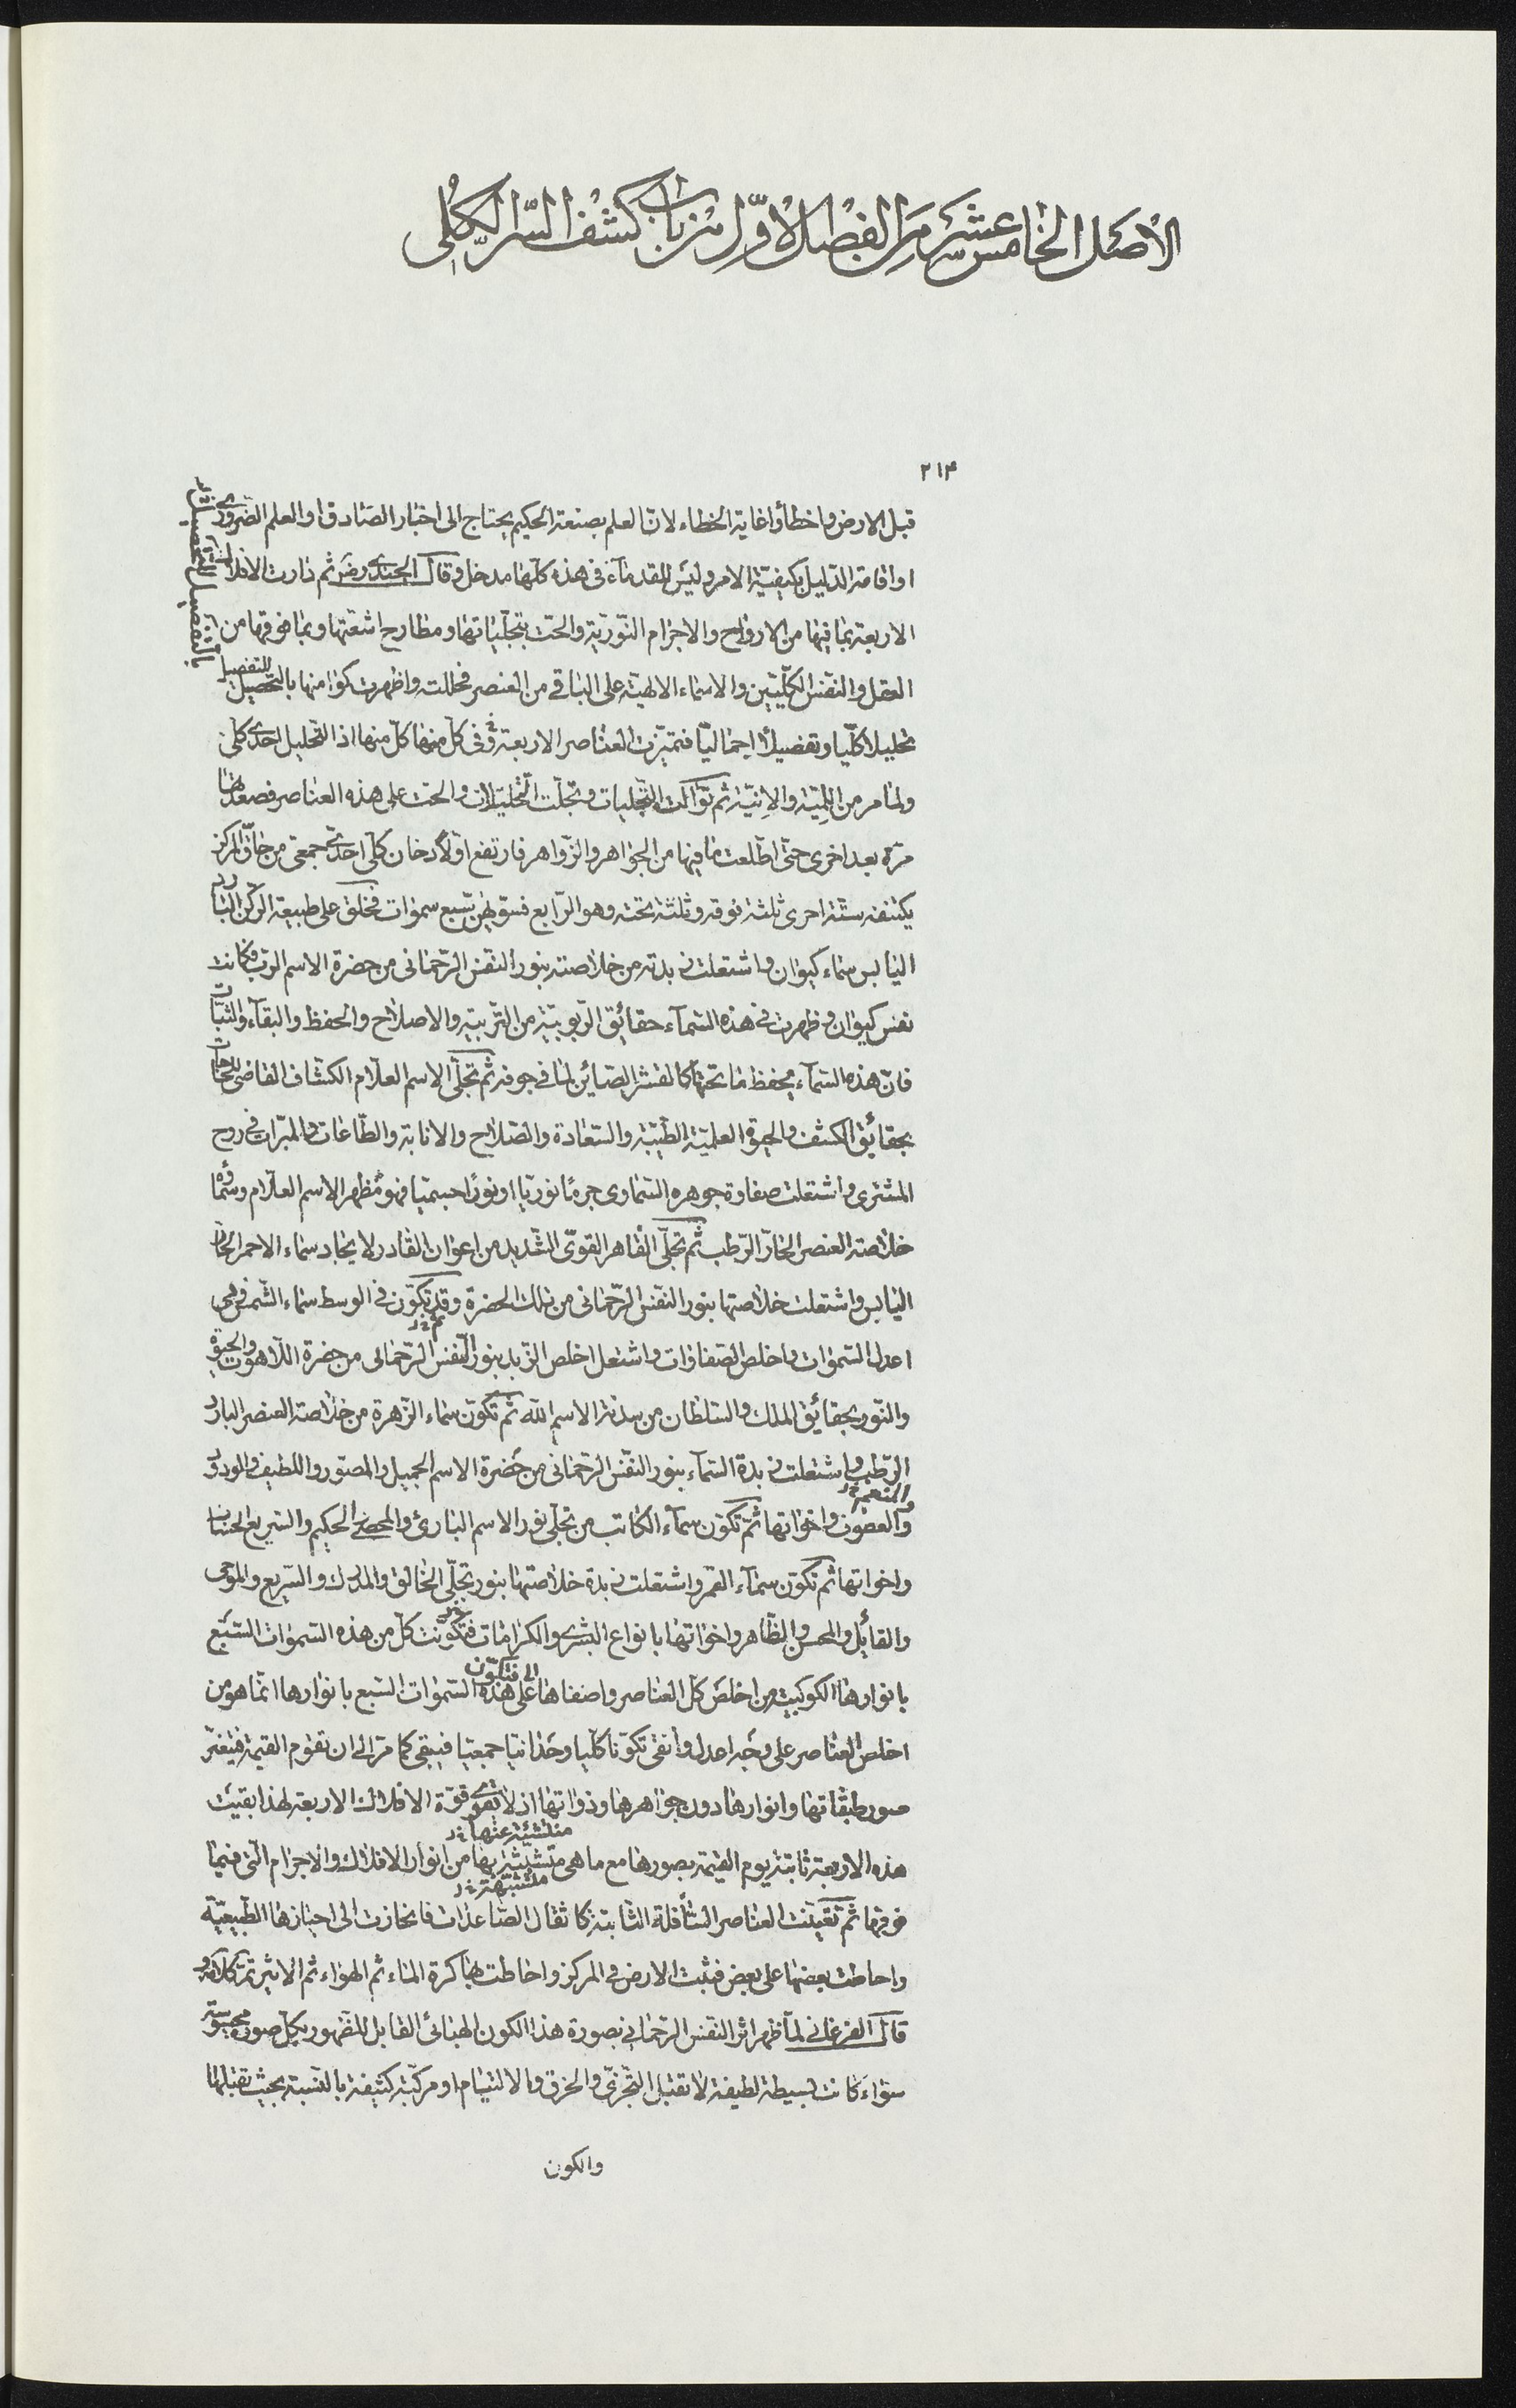 الأصل الخامس عشر من الفصل الأوّل من باب كشف السّر الكلّی
۲۱۴
قبل الارض واخطأوا غاية الخطاء لانّ العلم بصنعة الحكيم يحتاج الى اخبار الصّادق او العلم الضّروری
او اقامة الدّليل بكيفيّة الامر وليس للقدماء فى هذه كلّها مدخل وقال الجندی رض ثم دارت الافلاك
الاربعة بما فيها من الارواح والاجرام النّوريّة والحّت بتجلّياتها ومطارح اشعّتها وبما فوقها من
العقل والنّفس الكلّيّين والاسماء الالهيّة على الباقى من العنصر فحللت واظهرت كوامنها بالتّحصيل
للتفصيل
تحليلا كلّيا وتفصيلاً اجماليّا فتميّزت العناصر الاربعة وفى كلّ منها كلّ منها اذ التّحليل احدی كلّى
ولما مر من اللّميّة والانيّة ثم توالت التّجليات وتجلّت التّحليلات والحّت على هذه العناصر فصعدتها
مرّة بعد اخرى حتّى اطّلعت ما فيها من الجواهر والزّواهر فارتفع اوّلاً دخان كلّى احدی جمعى من حاقّ المركز
يكتنفه ستّة اخرى ثلثة فوقه وثلثة تحته وهو الرّابع فسوّيهنّ سبع سموات فخلق على طبيعة الركن البارد
اليابس سماء كيوان واشتعلت زبدته من خلاصته بنور النّفس الرّحمانى من حضرة الاسم الرب فكانت
نفس كيوان وظهرت فى هذه السّماء حقائق الرّبوبيّة من التّربية والاصلاح والحفظ والبقآء والثّبات
فانّ هذه السّمآء يحفظ ما تحتها كالقشر الصّائن لما فى جوفه ثم تجلّى الاسم العلّام الكشّاف القاضى للحاجات
بحقائق الكشف والحيوة العلميّة الطّيّبة والسّعادة والصّلاح والانابة والطّاعات والمبرّات فى روح
المشترى واشتعلت صفاوة جوهره السّماوى جرمًا نوريّا او نورًا جسميّا فهو مظهر الاسم العلّام وسماؤه
خلاصة العنصر الحارّ الرّطب ثم تجلّى القاهر القوىّ الشّديد من اعوان القادر لايجاد سماء الاحمر الحارّ
اليابس واشتعلت خلاصتها بنور النّفس الرّحمانى من تلك الحضرة وقد تكوّن فى الوسط سماء الشّمس فهى
ثم خ ر
اعدل السّموات واخلص الصّفاوات واشتعل اخلص الزّبد بنور النّفس الرّحمانى من حضرة اللّاهوت والحيوة
والنّور بحقائق الملك والسّلطان من سدنة الاسم اللّه ثم تكوّن سماء الزّهرة من خلاصة العنصر البارد
الرّطب واشتعلت زبدة السّمآء بنور النّفس الرّحمانى من حضرة الاسم الجميل والمصوّر واللطيف والودود
والمنعم
والعطوف واخواتها ثمّ تكوّن سمآء الكاتب من تجلّى نور الاسم البارئ والمحصى الحكيم والسّريع الحساب
واخواتها ثم تكوّن سمآء القمر واشتعلت زبدة خلاصتها بنور تجلّى الخالق والمدرك والسّريع والموحى
والقائل والمحسن والظّاهر واخواتها بانواع البشرى والكرامات فتكوّنت كلّ من هذه السّموات السّبع
بانوارها الكوكبيّة من اخلص كلّ العناصر واصفاها على هذه السّموات السّبع بانوارها انّما هو من
فتكوّن
اخلص العناصر على وجه اعدل وانقى تكوّنا كلّيا وحدانيّا جمعيّا فيبقى كما مرّ الى ان تقوم القيمة فيتغيّر
صور طبقاتها وانوارها دون جواهرها وذواتها اذ لا تقوى قوّة الافلاك الاربعة لهذا بقيت
منتشئة عنها خ ر
هذه الاربعة ثابتة يوم القيمة بصورها مع ما هى متشبّثة بها من انوار الافلاك والاجرام الّتى فيما
متشبّهة خ ر
فوقها ثم تعيّنت العناصر السّافلة الثّابتة كاثقال الصّاعدات فانحازت الى احيازها الطّبيعيّة
واحاطت بعضها على بعض فثبت الارض فى المركز واحاطت بها كرة الماء ثم الهواء ثم الاثير تمّ كلامه و
قال الفرغانى لما ظهر اثر النّفس الرّحمانى بصورة هذا الكون الهبائى القابل للظّهور بكلّ صورة محسوسة
سواء كانت بسيطة لطيفة لا تقبل التّجزّى والخرق والالتيام او مركّبة كثيفة بالنّسبة بحيث تقبلها
والكون